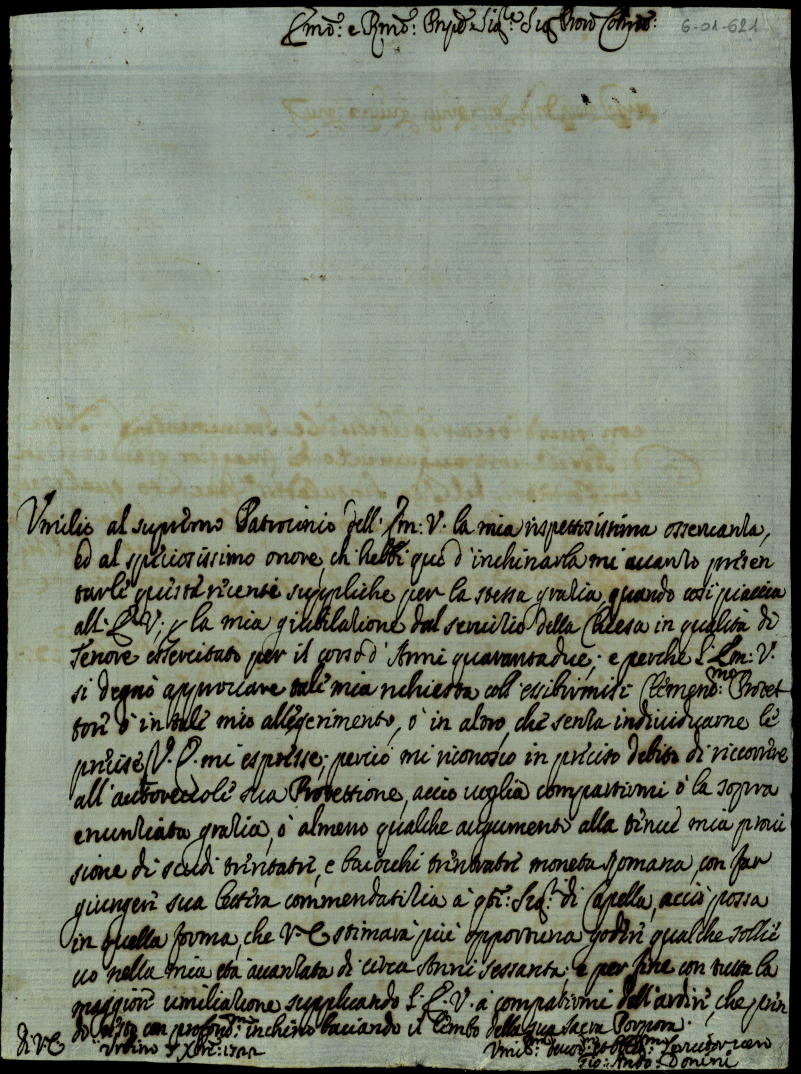 Emo: e Rmo: Prnpe Sigre Sig Prone Colmo:
6-01-621
Umilio al supremo Patrocinio dell'Em: V. la mia rispettosissima osservanza,
ed al speciosissimo onore, ch'hebbi quì d'inchinarla mi avanzo presen
tarle queste ricenti suppliche per la stessa grazia, quando così piaccia
all'E. V., p la mia giubilazione dal servizio della Chiesa in qualità di
Tenore essercitato per il corso d'Anni quarantadue; e perche l'Em: V.
si degnò approciare tale mia richiesta coll'essibirmisi Clemenmo: Protet
tore ò in tale mio allegerimento, ò in altro, che senza individuarne le
precise V. E. mi espresse; perciò mi riconosco in preciso debito di riccorrere
all'autorevole sua Protettione, acciò voglia compartirmi ò la sopra
enuntiata grazia, ò almeno qualche augumento alla tenue mia provi
sione di scudi trentatre, e baiocchi trentatre moneta Romana, con far
giungere sua lettera commendatizia à qti: Sigri di Capella, acciò possa
in quella forma, che V. E. stimarà più opportuna godere qualche sollie
vo nella mia età avanzata di circa Anni sessanta. e per fine con tutta la
maggiore umiliazione supplicando l'E. V. à compatirmi dell'ardire, che pren
do resto con profondmo: inchino baciando il lembo della sua Sacra Porpora.
Di V. E. Urbino Xbre: 1722
Umilmo: devotmo: et obblmo: Servidor vero
Gio: Anto: Donini